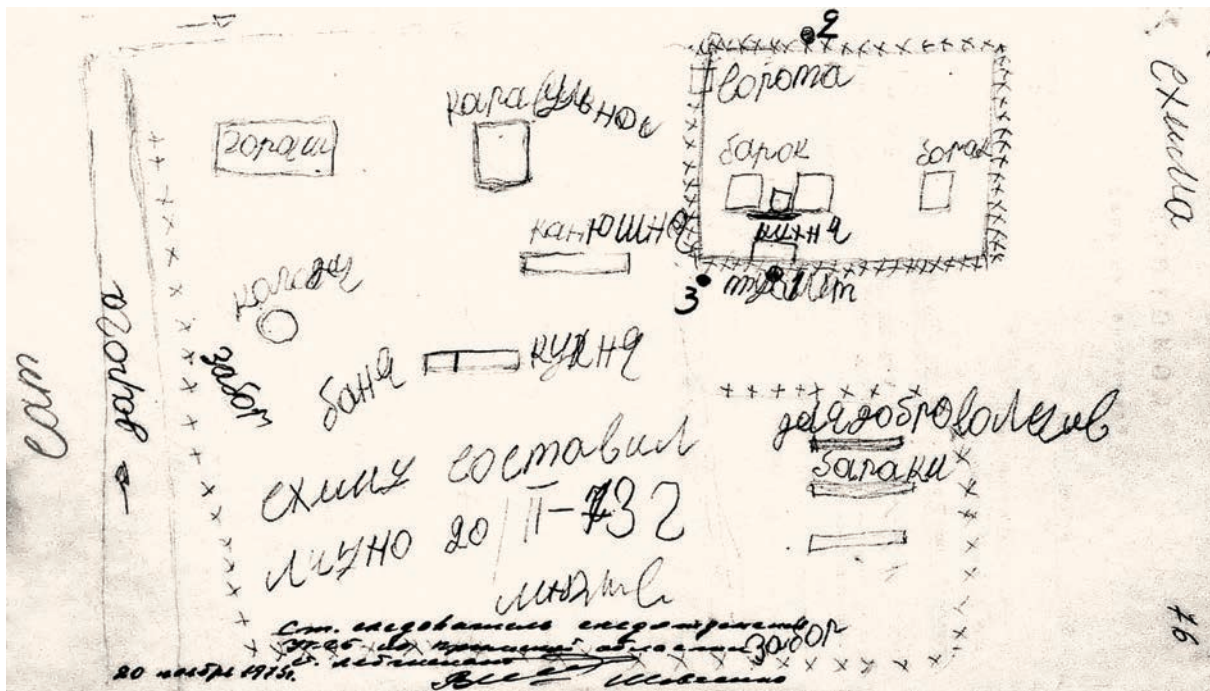 схима
76
2
ворота
гораш
караульное
барок
барак
канюшня
кихня
3
туалет
колодец
сат
агород
забог
баня
кухня
для доброволцив
бараки
схиму составил
лично 20/II-732
забог
Ст. следователь следотделения
20 ноября 1973г.